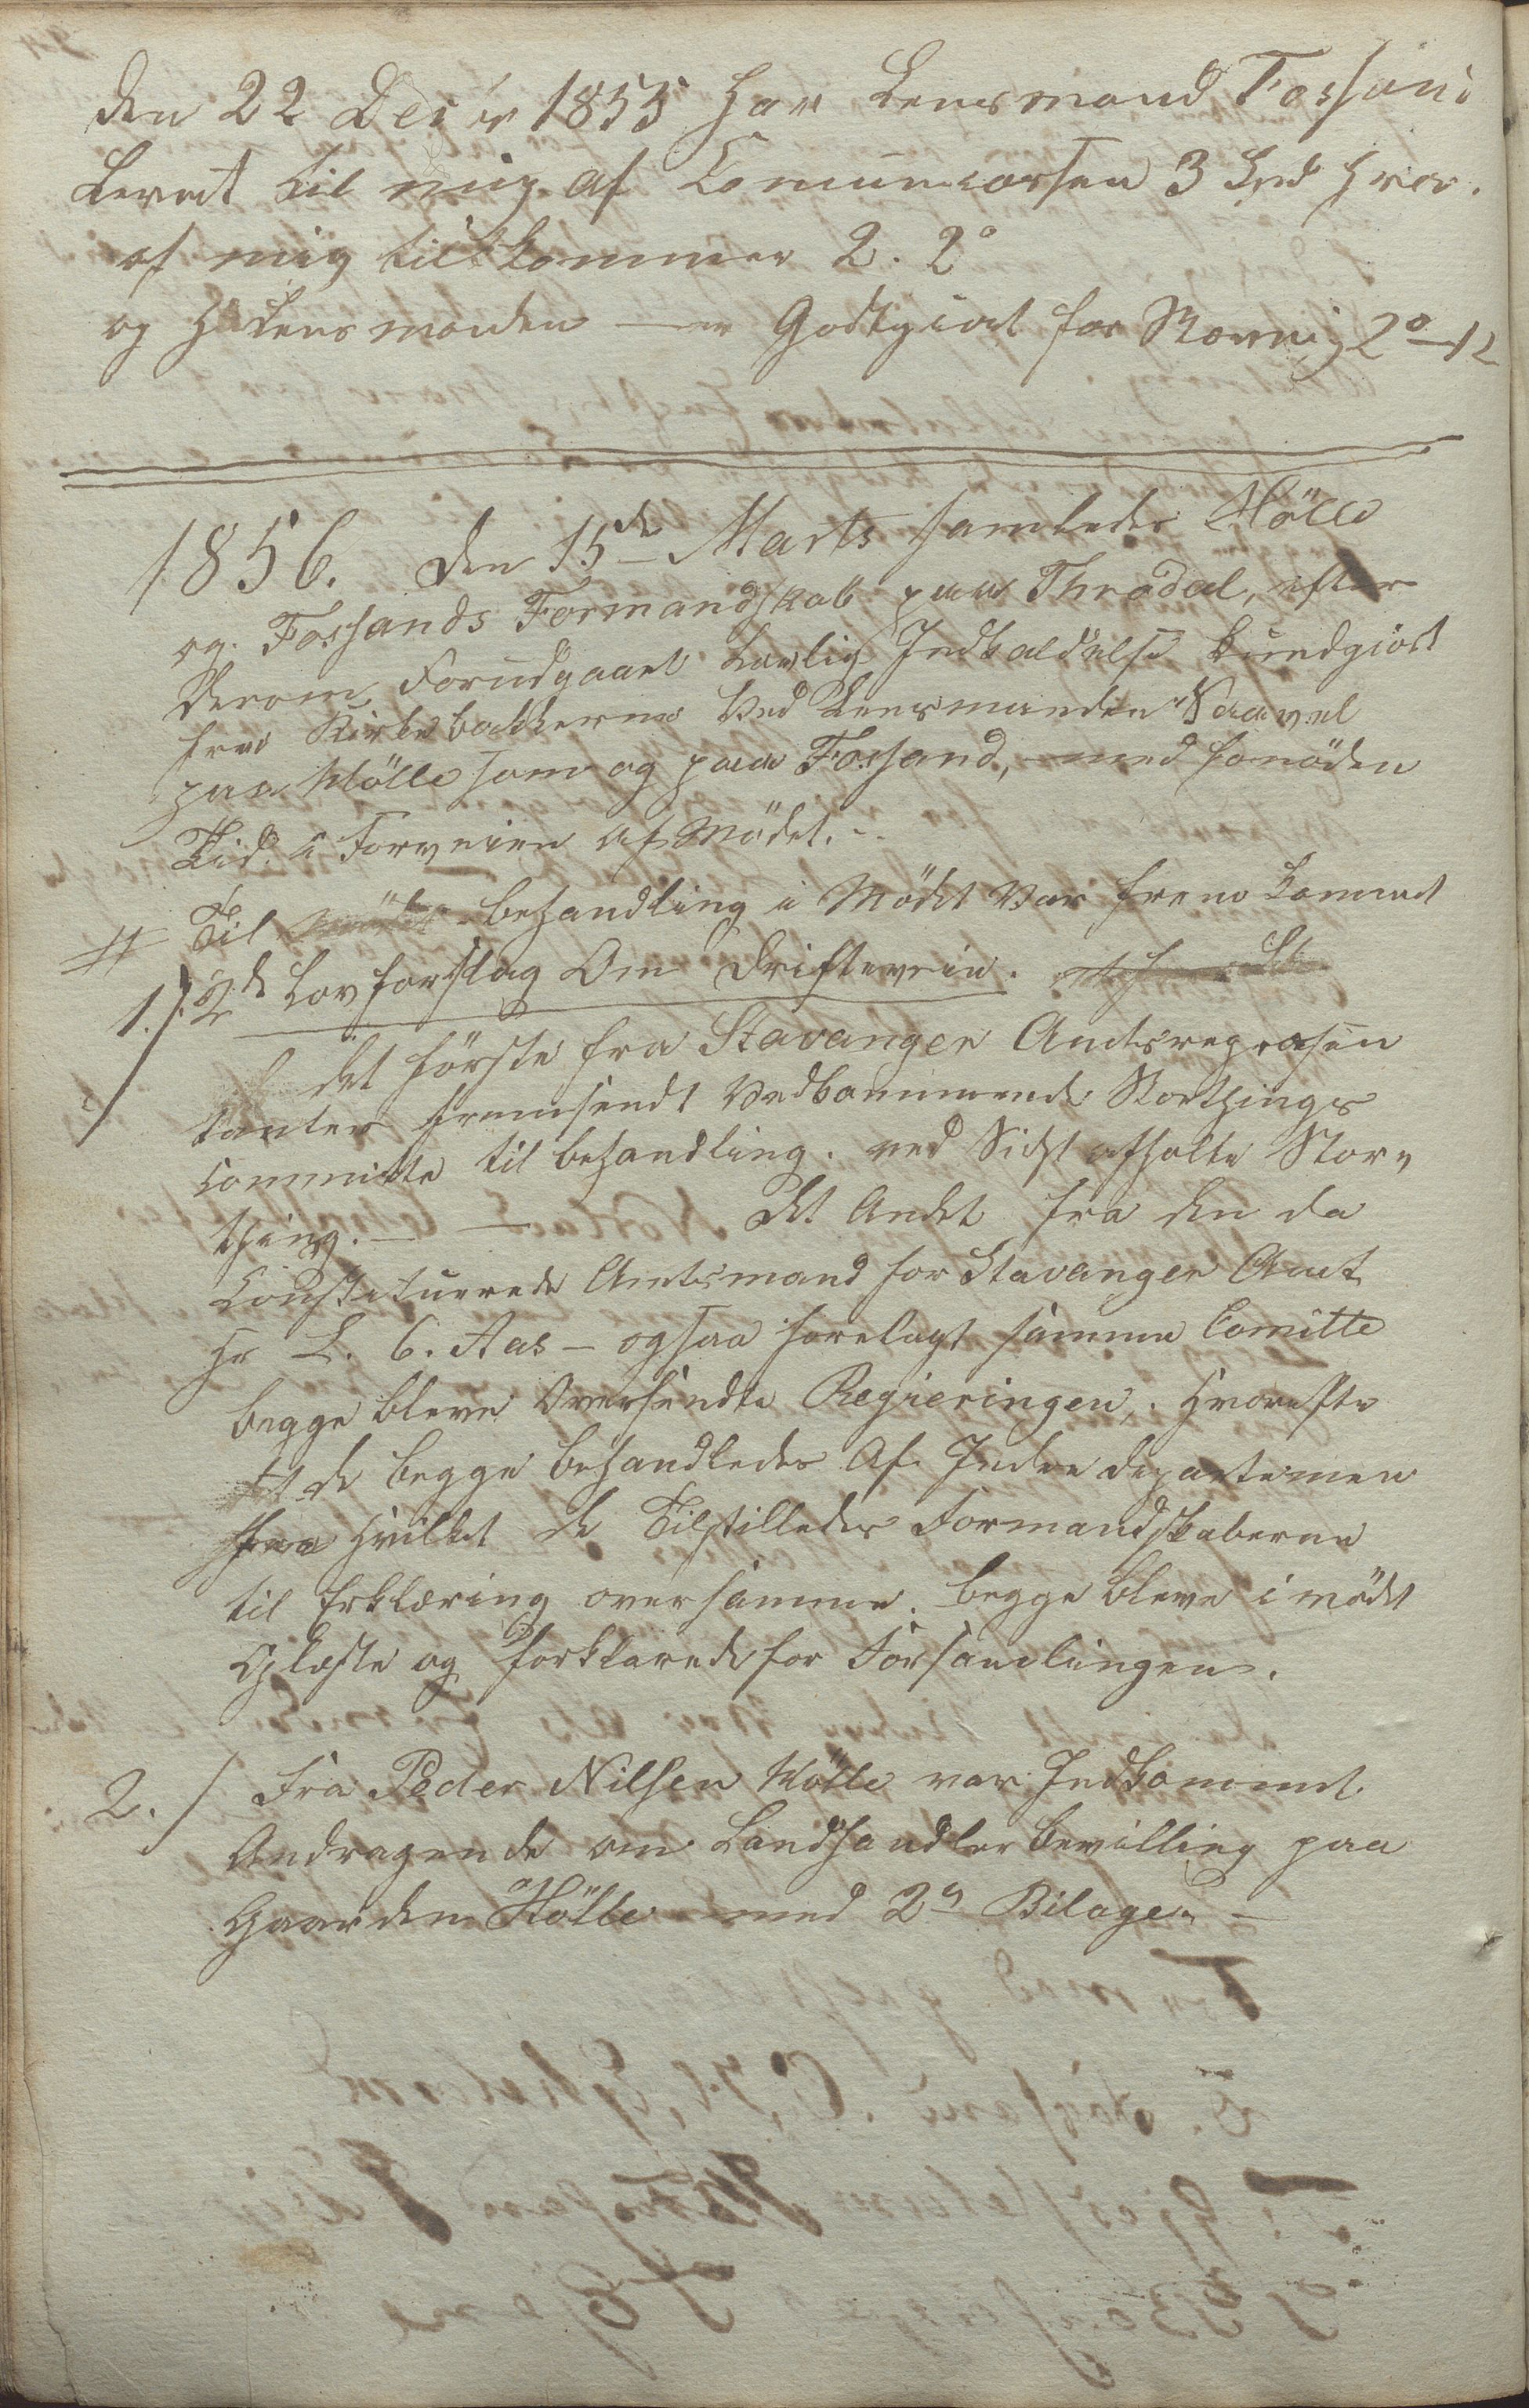 den 22 Decbr 1855 har Lensmand Fossand
Leveret til mig af Comunecassen 3 Spd hvor
af mig tilkommer 2. 2
og H Lensmanden — Godtgiort for 2 12
1856. Den 15de Marts samledes Hölle
og Fossands Formandskab paa Thrödal, efter
derom Forudgaaet Lovlig Indkaldelse Kundgiort
fra Kirkebakkerne Ved Lensmanden Saavel
paa Hölle som og paa Fossand, med fornöden
Tid i Forveien af Mödet. -
Til behandling i Mödet Var frem kommet
1./ 2de Lovforslag Om Driftevein.
det förste fra Stavanger Amtsrepræsen
tanter fremsendt Vedkommende Storthings
committe til behandling. ved Sidst afholte Stor„
thing. — — Det Andet fra den da
Constituerede Amtsmand for Stavanger Amt
Hr L. C. Aas – ogsaa forelagt samme Comitte
begge bleve Oversendte Regieringen, hvorefter
de begge behandledes Af Indre departemen
fra hvilket de Tilstilledes Formandskaberne
til Erklæring over samme. begge bleve i mödet
Oplæste og forklarede for Forsamlingen.
2./ Fra Peder Nilsen Hölle var Indkommet
Andragende om Landhandler bevilling paa
Gaarden Hölle med 2 Bilage. –